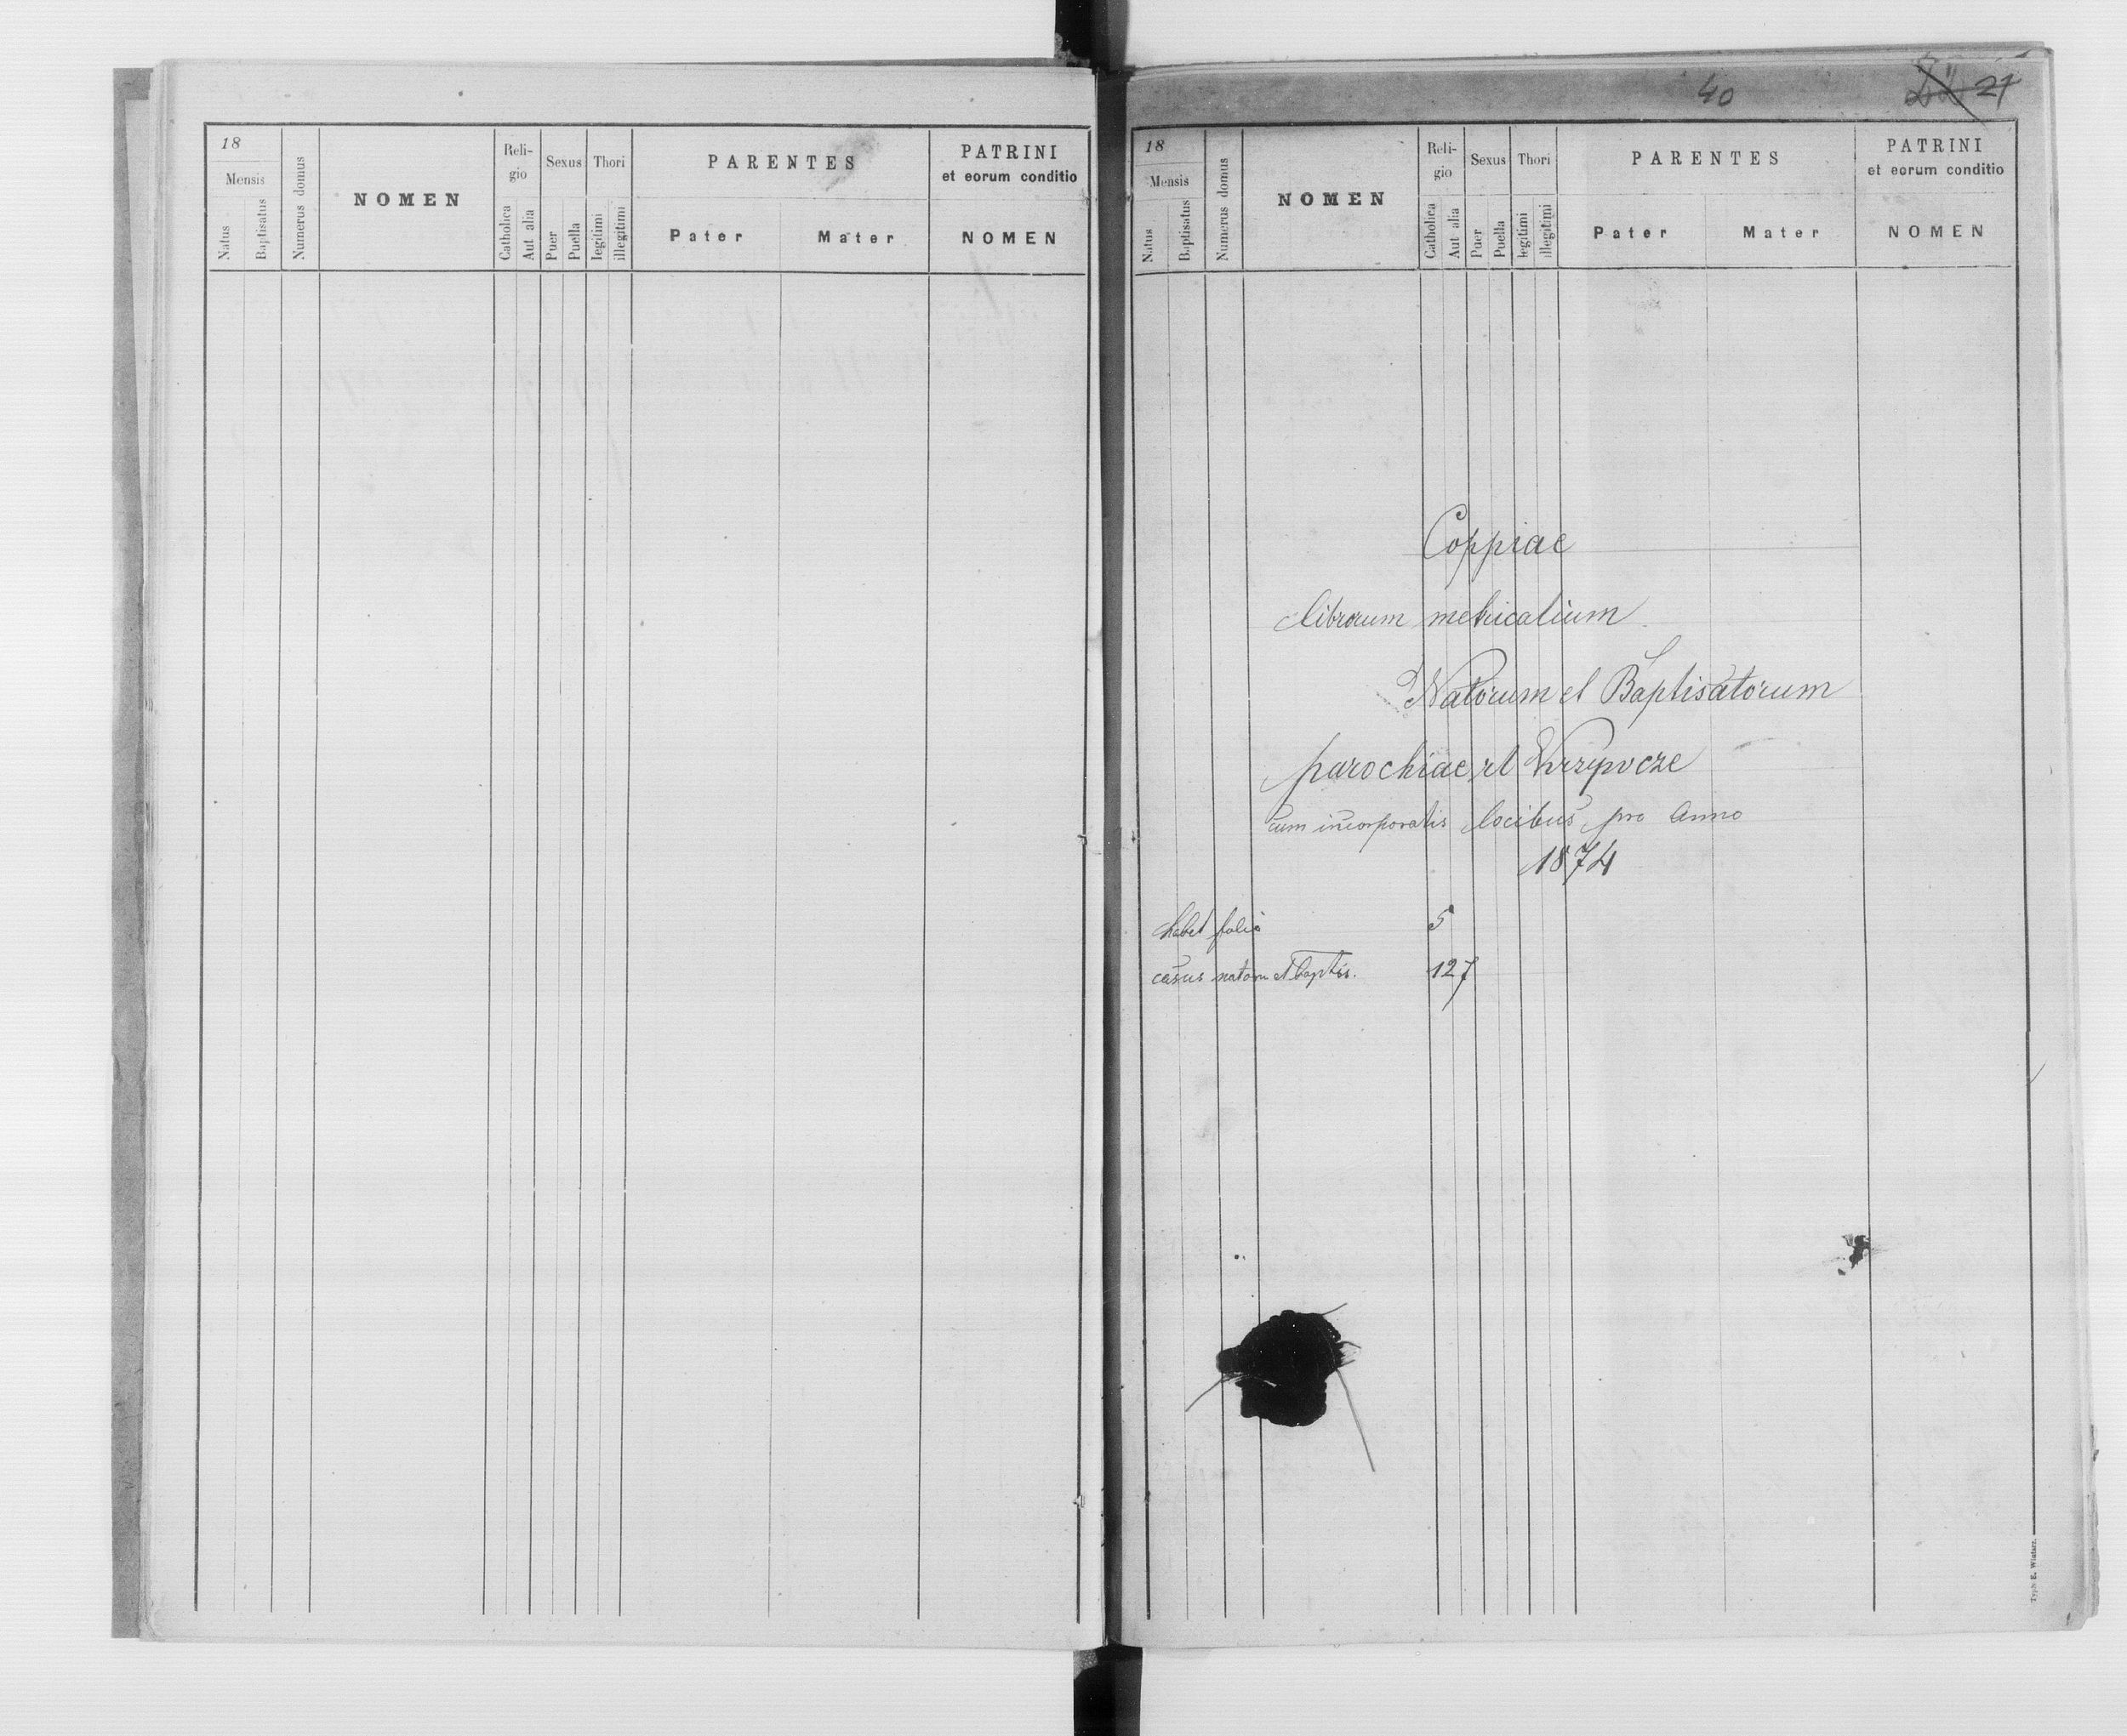 18
Mensis
Natus
Baptisatus
Numerus domus
NOMEN
Reli-
gio
Catholica
Aut alia
Sexus
Puer
Puella
Thori
legitimi
illegitimi
PARENTES
Pater
Mater
PATRINI
et eorum conditio
NOMEN
40
27
18
Mensis
Natus
Baptisatus
Numerus domus
NOMEN
Reli-
gio
Catholica
Aut alia
Sexus
Puer
Puella
Thori
legitimi
illegitimi
PARENTES
Pater
Mater
PATRINI
et eorum conditio
NOMEN
Coppiae
librorum metricalium
Natorum et Baptisatorum
parochiae rl
cum incorporatis locibus pro Anno
1874
habet folia 5
casus nator et baptis. 127
Typis E. Winiarz.